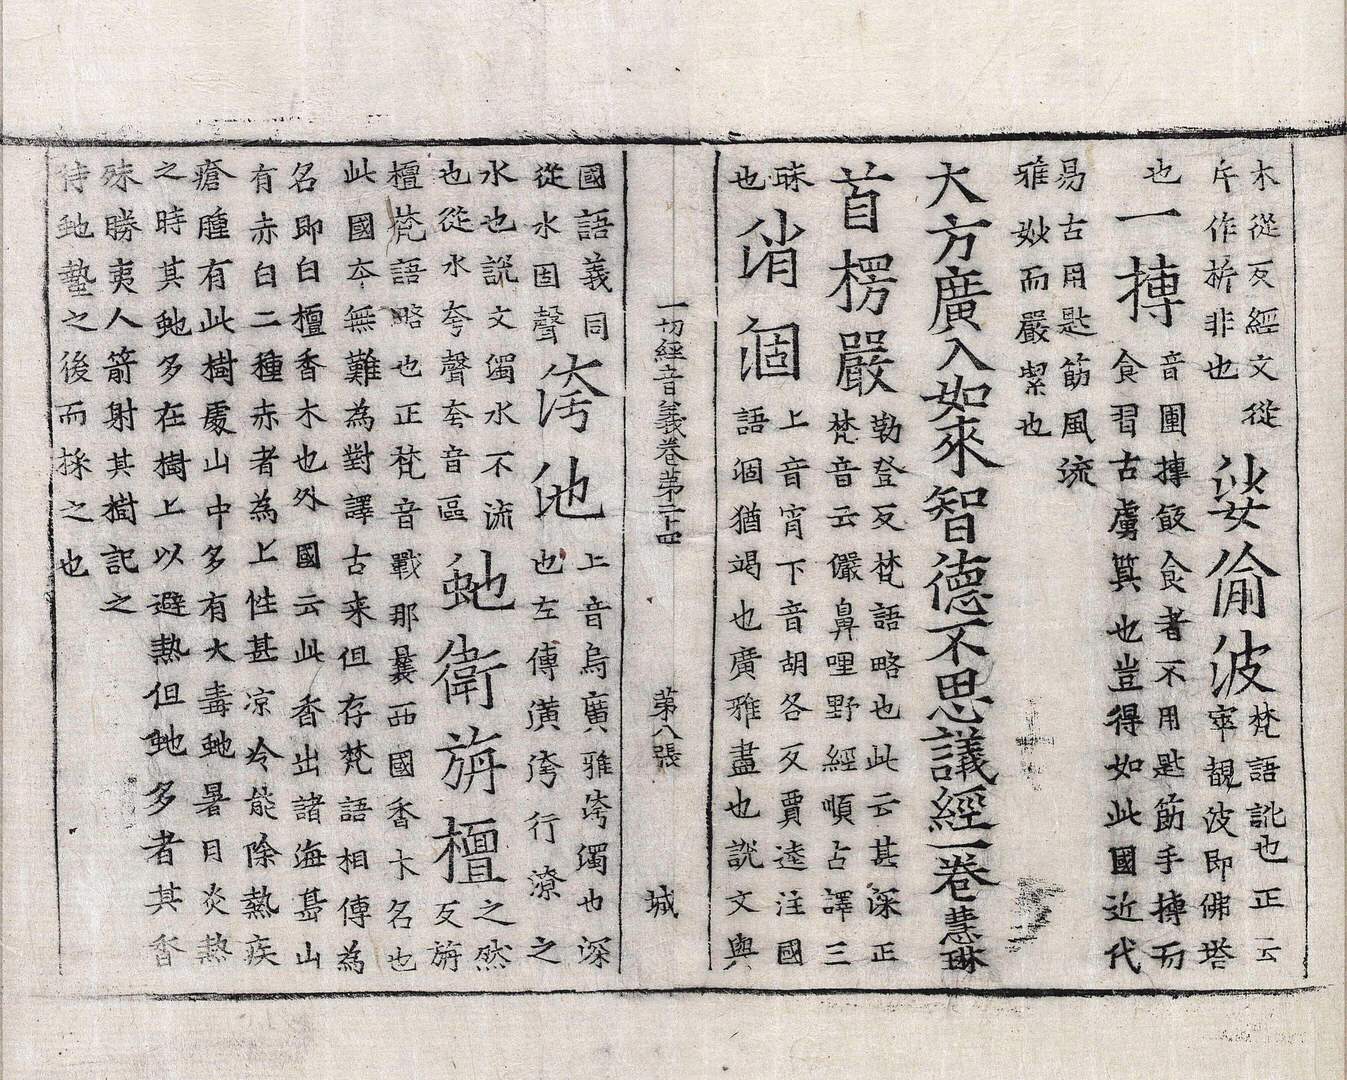 木從反經文從
斥作㭊非也
窣偷波
梵語訛也正云
窣覩波即佛塔
也
一摶
音團摶飯食者不用匙筯手摶而
食習古虜䈂也豈得如此國近代
易古用匙筯風流
雅妙而嚴潔也
大方廣入如來智德不思議經一卷慧琳
首楞嚴
勒登反梵語略也此云甚深正
梵音云儼鼻哩野經順古譯三
昧
也
消涸
上音宵下音胡各反賈逵注國
語涸猶竭也廣雅盡也說文與
一切經音義卷第二十四
第八張
城
國語義同
從水固聲
洿池
上音烏廣雅洿濁也深
也左傳潢洿行潦之
水也說文濁水不流
也從水夸聲夸音區
虵衛旃檀
之然
反旃
檀梵語略也正梵音戰那曩西國香木名也
此國本無難為對譯古來但存梵語相傳為
名即白檀香木也外國云此香出諸海㠀山
有赤白二種赤者為上性甚凉冷能除熱疾
瘡腫有此樹處山中多有大毒虵暑月炎熱
之時其虵多在樹上以避熱但虵多者其香
殊勝夷人箭射其樹記之
待虵蟄之後而採之也